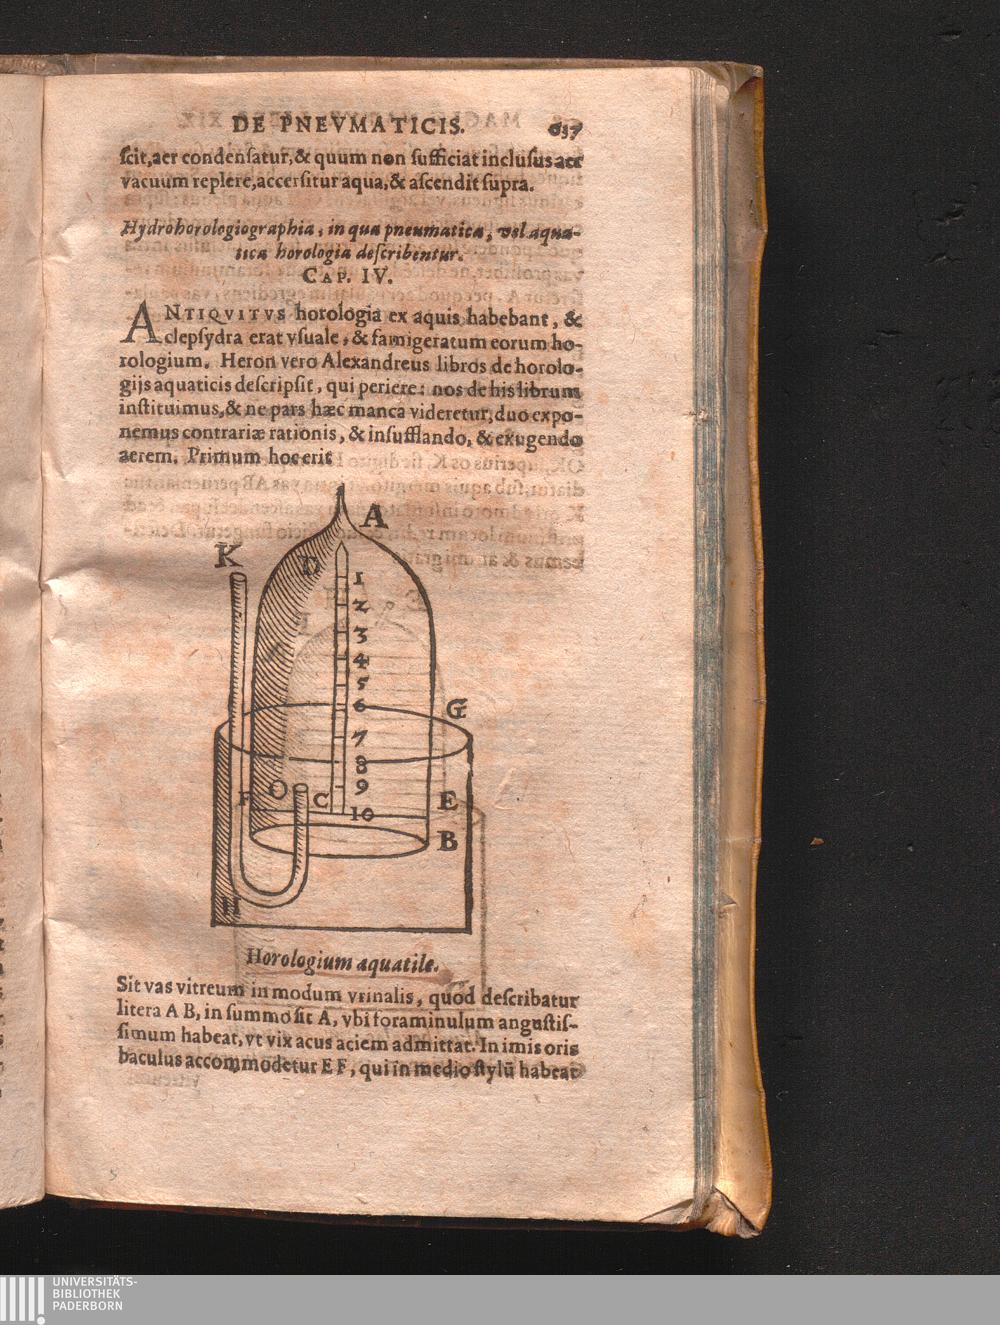 DE PNEVMATICIS. 637
ſcit,aer condenſatur,& quum non ſufficiat incluſus aer
vacuum replere,accerſitur aqua,& aſcendit ſupra.
Hydrohorologiographia, in qua pneumatica, vel aqua-
tica horologia deſcribentur.
CAP. IV.
ANTIQVITVS horologia ex aquis habebant, &
clepſydra erat vſuale, & famigeratum eorum ho-
rologium. Heron vero Alexandreus libros de horolo-
gijs aquaticis deſcripſit, qui periere: nos de his librum
inſtituimus,& ne pars hæc manca videretur, duo expo-
nemus contrariæ rationis, & inſufflando, & exugendo
aerem. Primum hoc erit
A
K
D
1
2
3
4
5
6
G
7
8
O
9
F
C
E
10
B
H
Horologium aquatile.
Sit vas vitreum in modum vrinalis, quod deſcribatur
litera A B, in ſummo ſit A, vbi foraminulum anguſtiſ-
ſimum habeat, vt vix acus aciem admittat. In imis oris
baculus accommodetur E F, qui in medio ſtylū habeat
UNIVERSITÄTS-
BIBLIOTHEK
PADERBORN